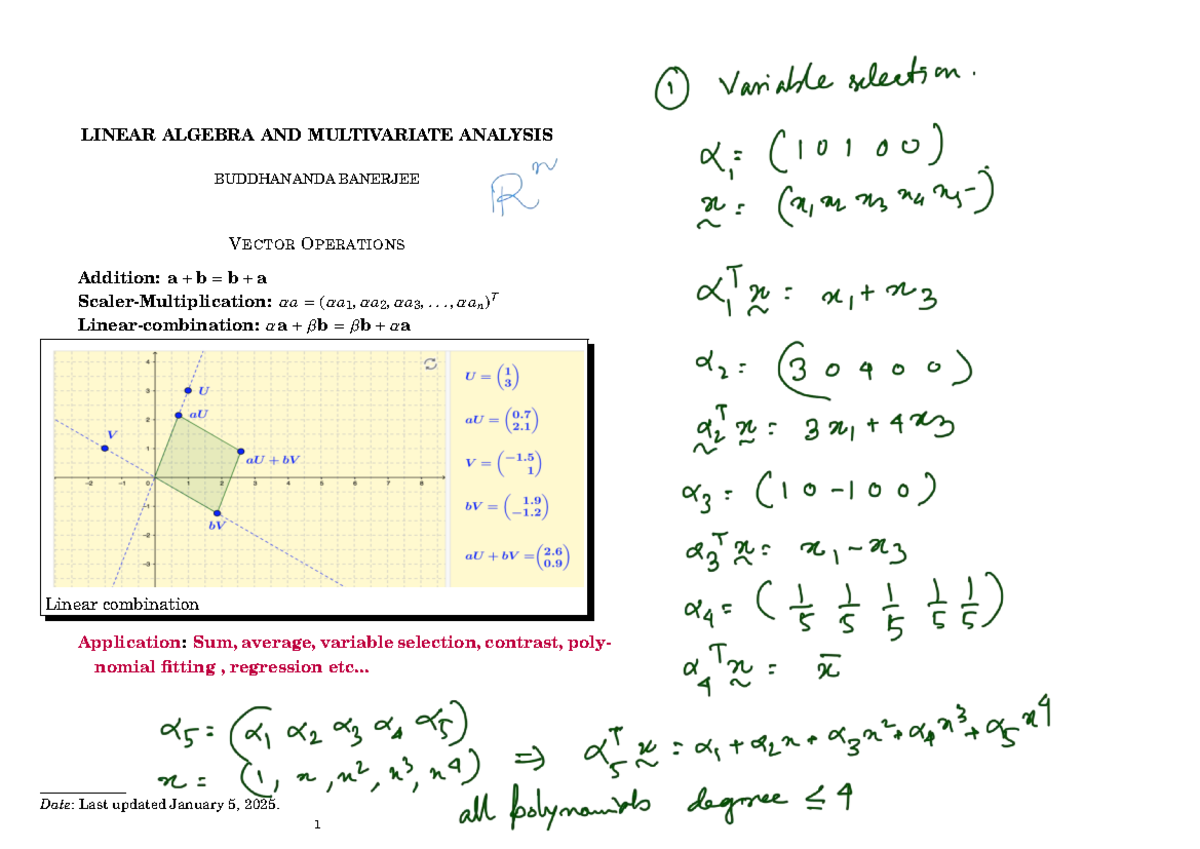 LINEAR ALGEBRA AND MULTIVARIATE ANALYSIS
BUDDHANANDA BANERJEE
ℝⁿ
VECTOR OPERATIONS
Addition: a + b = b + a
Scaler-Multiplication: αa = (αa₁, αa₂, αa₃, …, αaₙ)ᵀ
Linear-combination: αa + βb = βb + αa
4
3
2
1
0
-1
-2
-3
-2 -1 1 2 3 4 5 6 7 8
U
aU
V
aU + bV
bV
U = (1 3)
aU = (0.7 2.1)
V = (−1.5 1)
bV = (1.9 −1.2)
aU + bV = (2.6 0.9)
Linear combination
Application: Sum, average, variable selection, contrast, poly-
nomial fitting , regression etc...
① Variable selection.
α₁ = (1 0 1 0 0)
x = (x₁ x₂ x₃ x₄ x₅)
α₁ᵀ x = x₁ + x₃
α₂ = (3 0 4 0 0)
α₂ᵀ x = 3x₁ + 4x₃
α₃ = (1 0 -1 0 0)
α₃ᵀ x = x₁ − x₃
α₄ = (1/5 1/5 1/5 1/5 1/5)
α₄ᵀ x = x̄
α₅ = (α₁ α₂ α₃ α₄ α₅)
x = (1, x, x², x³, x⁴)
⇒ α₅ᵀ x = α₁ + α₂x + α₃x² + α₄x³ + α₅x⁴
all polynomials degree ≤ 4
Date: Last updated January 5, 2025.
1